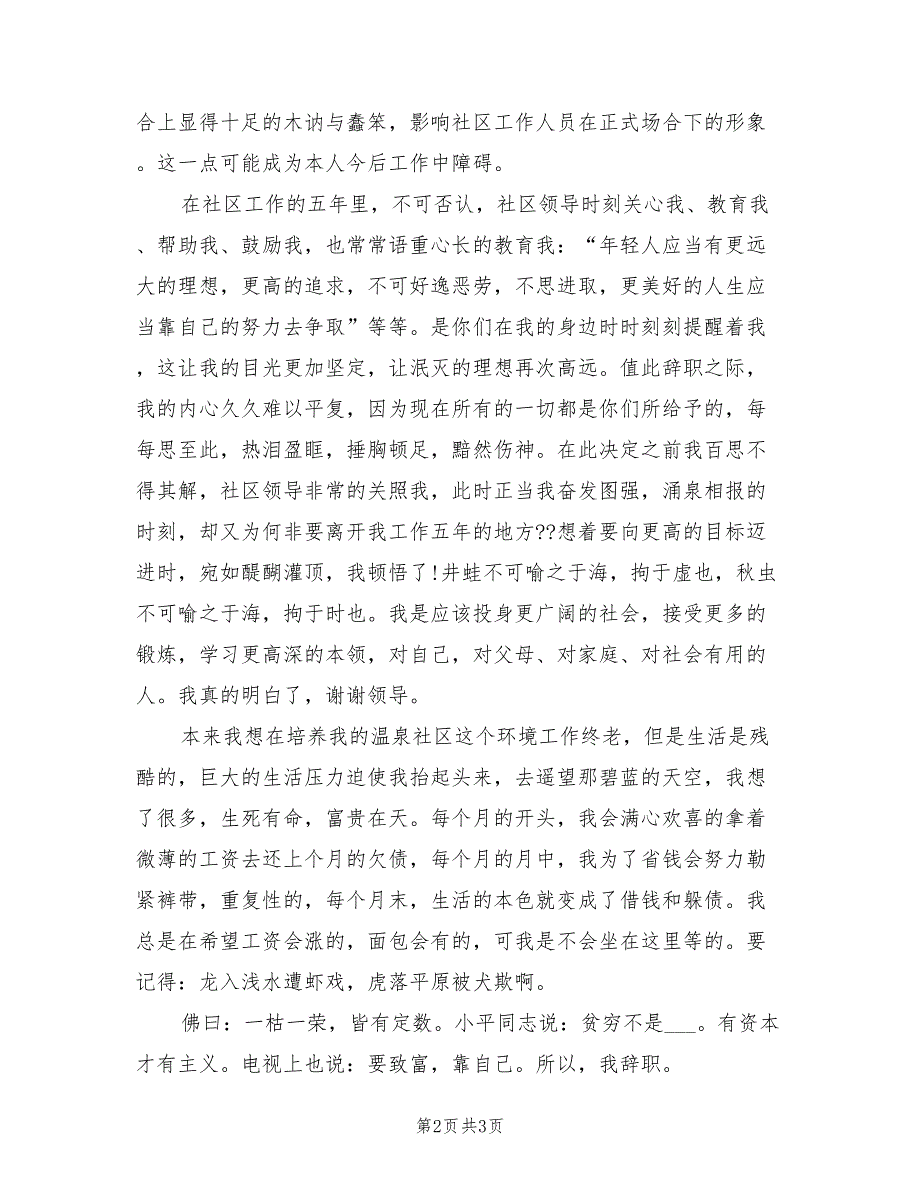 合上显得十足的木讷与蠢笨，影响社区工作人员在正式场合下的形象
。这一点可能成为本人今后工作中障碍。
在社区工作的五年里，不可否认，社区领导时刻关心我、教育我
、帮助我、鼓励我，也常常语重心长的教育我：“年轻人应当有更远
大的理想，更高的追求，不可好逸恶劳，不思进取，更美好的人生应
当靠自己的努力去争取”等等。是你们在我的身边时时刻刻提醒着我
，这让我的目光更加坚定，让泯灭的理想再次高远。值此辞职之际，
我的内心久久难以平复，因为现在所有的一切都是你们所给予的，每
每思至此，热泪盈眶，捶胸顿足，黯然伤神。在此决定之前我百思不
得其解，社区领导非常的关照我，此时正当我奋发图强，涌泉相报的
时刻，却又为何非要离开我工作五年的地方??想着要向更高的目标迈
进时，宛如醍醐灌顶，我顿悟了!井蛙不可喻之于海，拘于虚也，秋虫
不可喻之于海，拘于时也。我是应该投身更广阔的社会，接受更多的
锻炼，学习更高深的本领，对自己，对父母、对家庭、对社会有用的
人。我真的明白了，谢谢领导。
本来我想在培养我的温泉社区这个环境工作终老，但是生活是残
酷的，巨大的生活压力迫使我抬起头来，去遥望那碧蓝的天空，我想
了很多，生死有命，富贵在天。每个月的开头，我会满心欢喜的拿着
微薄的工资去还上个月的欠债，每个月的月中，我为了省钱会努力勒
紧裤带，重复性的，每个月末，生活的本色就变成了借钱和躲债。我
总是在希望工资会涨的，面包会有的，可我是不会坐在这里等的。要
记得：龙入浅水遭虾戏，虎落平原被犬欺啊。
佛曰：一枯一荣，皆有定数。小平同志说：贫穷不是___。有资本
才有主义。电视上也说：要致富，靠自己。所以，我辞职。
第2页 共3页